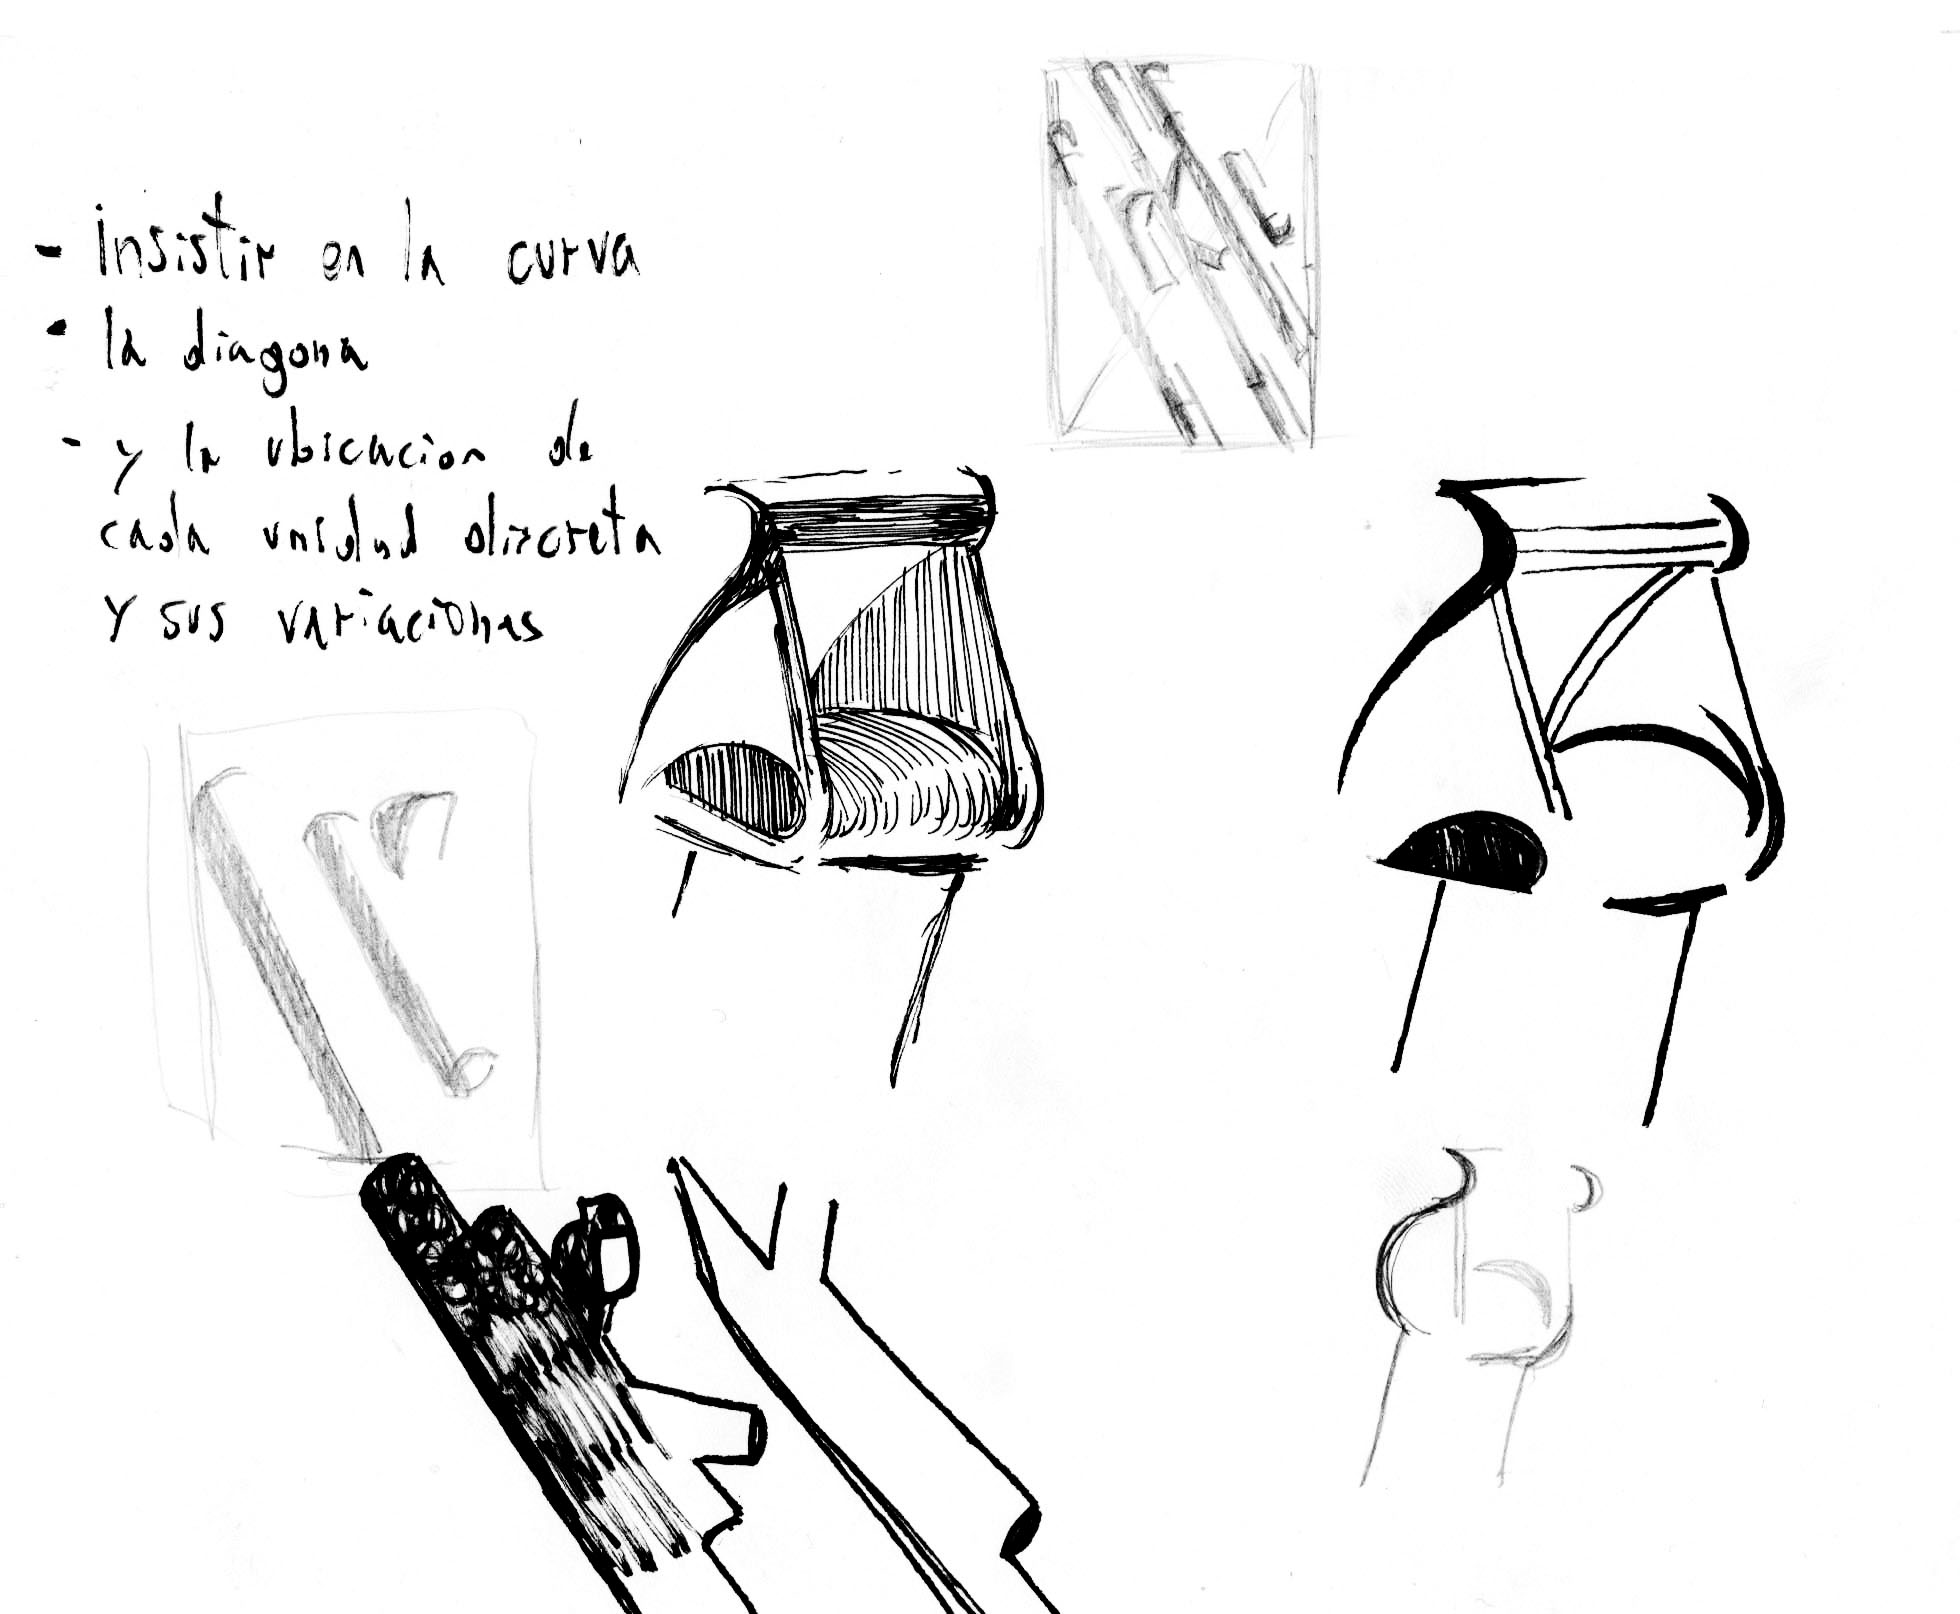 - insistir en la curva
- la diagona
- y la ubicacion de
cada unidad discreta
y sus variaciones